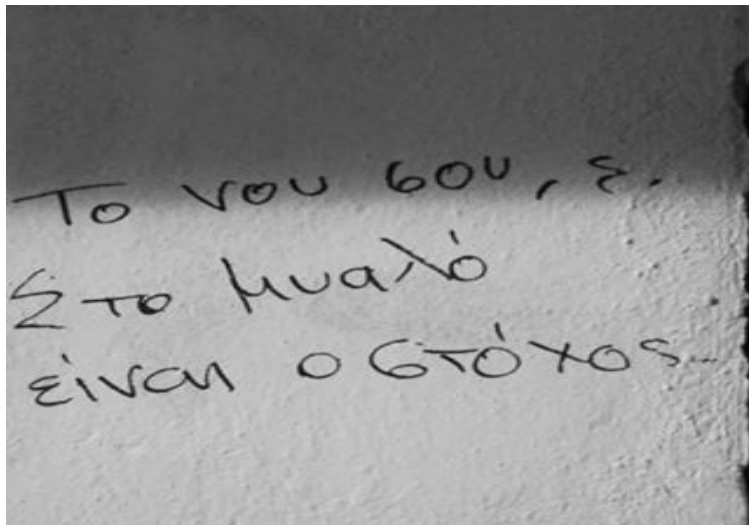 Το νου σου, ε.
Στο μυαλό
είναι ο στόχος..